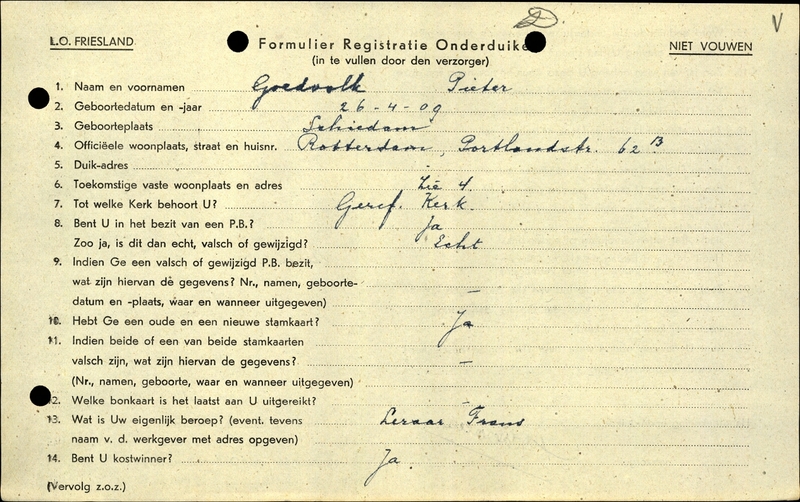 D
V
L.O. FRIESLAND
Formulier Registratie Onderduike
NIET VOUWEN
(in te vullen door den verzorger)
1. Naam en voornamen Goedvolk Pieter
2. Geboortedatum en -jaar 26-4-09
3. Geboorteplaats Schiedam
4. Officiëele woonplaats, straat en huisnr. Rotterdam, Portlandstr. 62 B
5. Duik-adres
6. Toekomstige vaste woonplaats en adres Zie 4.
7. Tot welke Kerk behoort U? Geref. Kerk.
8. Bent U in het bezit van een P.B.? Ja
Zoo ja, is dit dan echt, valsch of gewijzigd? Echt
9. Indien Ge een valsch of gewijzigd P.B. bezit,
wat zijn hiervan de gegevens? Nr., namen, geboorte-
datum en -plaats, waar en wanneer uitgegeven) —
10. Hebt Ge een oude en een nieuwe stamkaart? Ja
11. Indien beide of een van beide stamkaarten
valsch zijn, wat zijn hiervan de gegevens? —
(Nr., namen, geboorte, waar en wanneer uitgegeven)
12. Welke bonkaart is het laatst aan U uitgereikt?
13. Wat is Uw eigenlijk beroep? (event. tevens Leraar Frans
naam v. d. werkgever met adres opgeven)
14. Bent U kostwinner? Ja
(Vervolg z.o.z.)